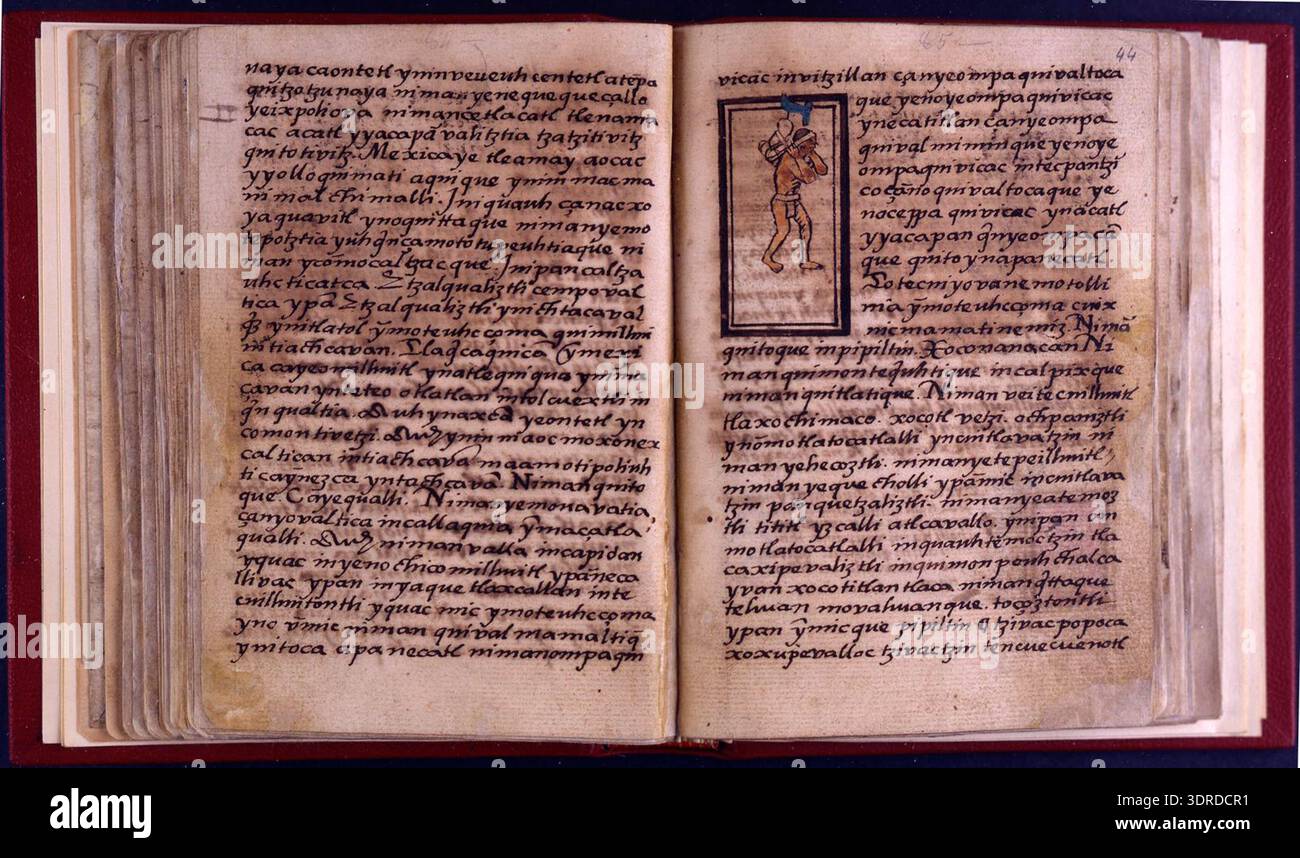 naya caontetl ynin veveuh centetl atepa
quitzotzunaya niman yeneque que callo
yeixpolioya nimance tlacatl tlenama
cac acatl yyacapā valiztia tzatzitivitz
quitotivitz. Mexicaye tleamay aocac
yyolloquimati aquique ynin macma
nimalchimalli. Iniquauh çanacxo
yaquavitl ynoquittaque nimanyemo
tepotztia yuhqinca mototupeuhtiaque ni
man ycōmocaltzacque. Inipan caltza
uhcticatca Etzalqualiztli cempoval
tica ypā Etzalqualiztli ynichtacaval
ynitlatol ymoteuhcçoma quimilhui
initiachcavan.
ca cayeomilhuitl ynatlequiqua ynima
çavan ynateo otlatlan intolcuextli in
qn qualtia. Auh ynaxcā yeontetl yn
comontivetzi. Auh ynin niaoc moxonex
caltican intiachcava maamotipoliuh
ticaynezca yntachcavā. Niman quito
que. Cayequalli. Nima yemovavatia
çanyovaltica incallaquia ymacatla
qualti. Auh niman valla incapidan
yquac inyenochicomilhuitl ypāneca
llivac ypan inyaque tlaxcallan inte
cuilhuitontli yquac mic ymoteuhcçoma
yno ymic niman quivalmamaltiq
ynitoca apanecatl nimanompaqui
44
vicac invitzillan çanyeompa quivaltoca
que yenoyeompa quivicac
ynecatitlan çanyeompa
quivalmiminque yenoye
ompaquivicac intecpantzi
coçano quivaltocaque ye
noceppa quivicac ynacatl
yyacapan qnyeompacan
que quito ynapanecatl.
Totecniyovane motolli
nia ymoteuhcçoma cuix
nicmamatinemiz. Nimā
quitoque inpipiltin. Xoconanacan Ni
man quimontequiuhtique incalpixque
niman quitlatique. Niman veitecuilhuitl
tlaxochimaco. xocotl vetzi. ochpanztli
ynōmotlatocatlalli yncuitlavatzin ni
man yehecoztli. nimanyetepeilhuitl
niman yeque cholli ypānic izcuitlava
tzin panquetzaliztli. nimanyeatemoz
tli tititl yzcalli atlcavallo. ynipan on
motlatocatlalli inquauhtemoctzin tla
caxipevaliztli inquimon peuh chalca
yvan xocotitlan tlaca niman qittaque
telwan movalwanque. toçoztontli
ypan ymicque pipiltin Tzivacpopoca
xoxupevalloc tzivactzin tencuecuenotl
alamy
Image ID: 3DRDCR1
www.alamy.com